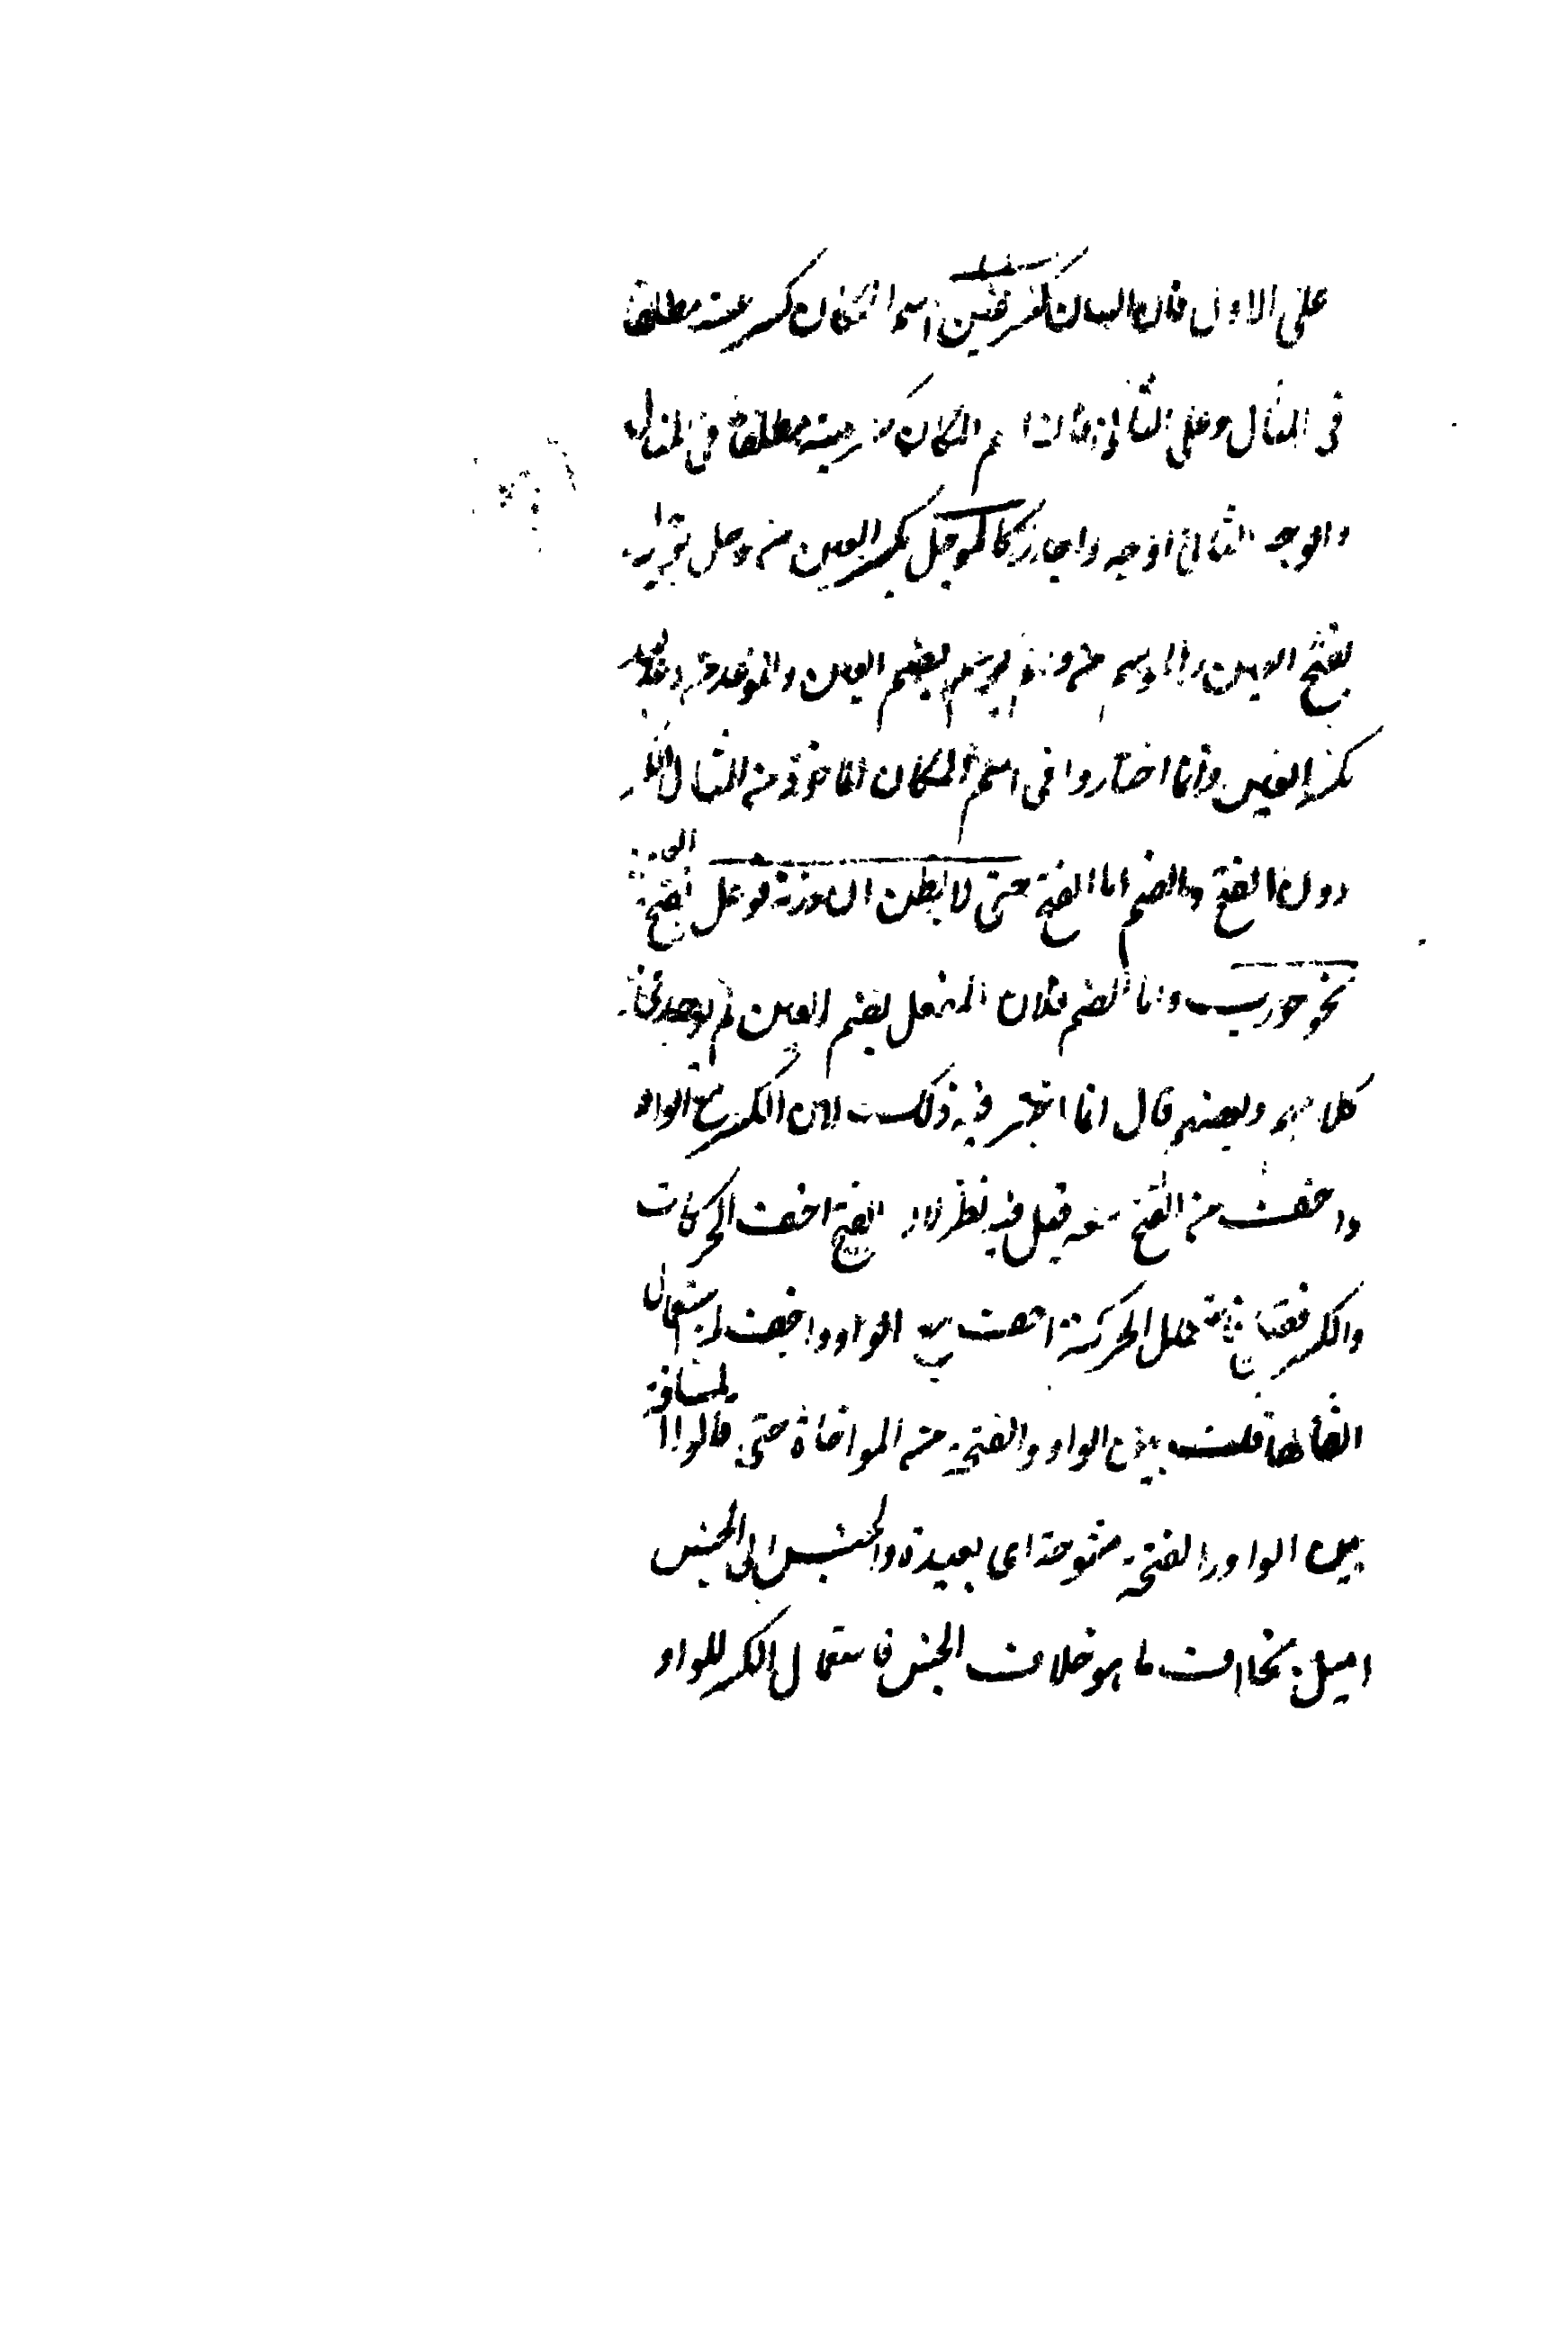 على الاول فان البيان كسر عين اسم المكان كسر عينه مطلقا
فى المثال وعلى الثانى فان اسم المكان كسر عينه مطلقا فى المثال
والوجه الثانى اوجه واجاز كالموجل بكسر العين من وجل
بفتح العين والموسم من وسم يوسم بضم العين والموعد من وعد يعد
بكسر العين وانما اختاروا فى اسم المكان الماخوذ من المثال الكسر
دون الفتح والضم اما الفتح حتى لا يظن ان وزنه فوعل بفتح العين
نحو جورب واما الضم فلان المفعل بضم العين لم يوجد فى
كلامهم وبعضهم قال انما اختير فيه ذلك لان الكسر مع الواو
اخف من الفتح معه قيل فيه نظر لان الفتح اخف الحركات
والكسر ثقيل الحركة اخف مع الواو واخف لاستعمال
قلت بين الواو والفتحة من المواخاة حتى قالوا المسافة
بين الواو والفتحة منفوحة اى بعيدة والجنس الى الجنس
اميل بخلاف ما هو خلاف الجنس فاستعمال الكسر للواو